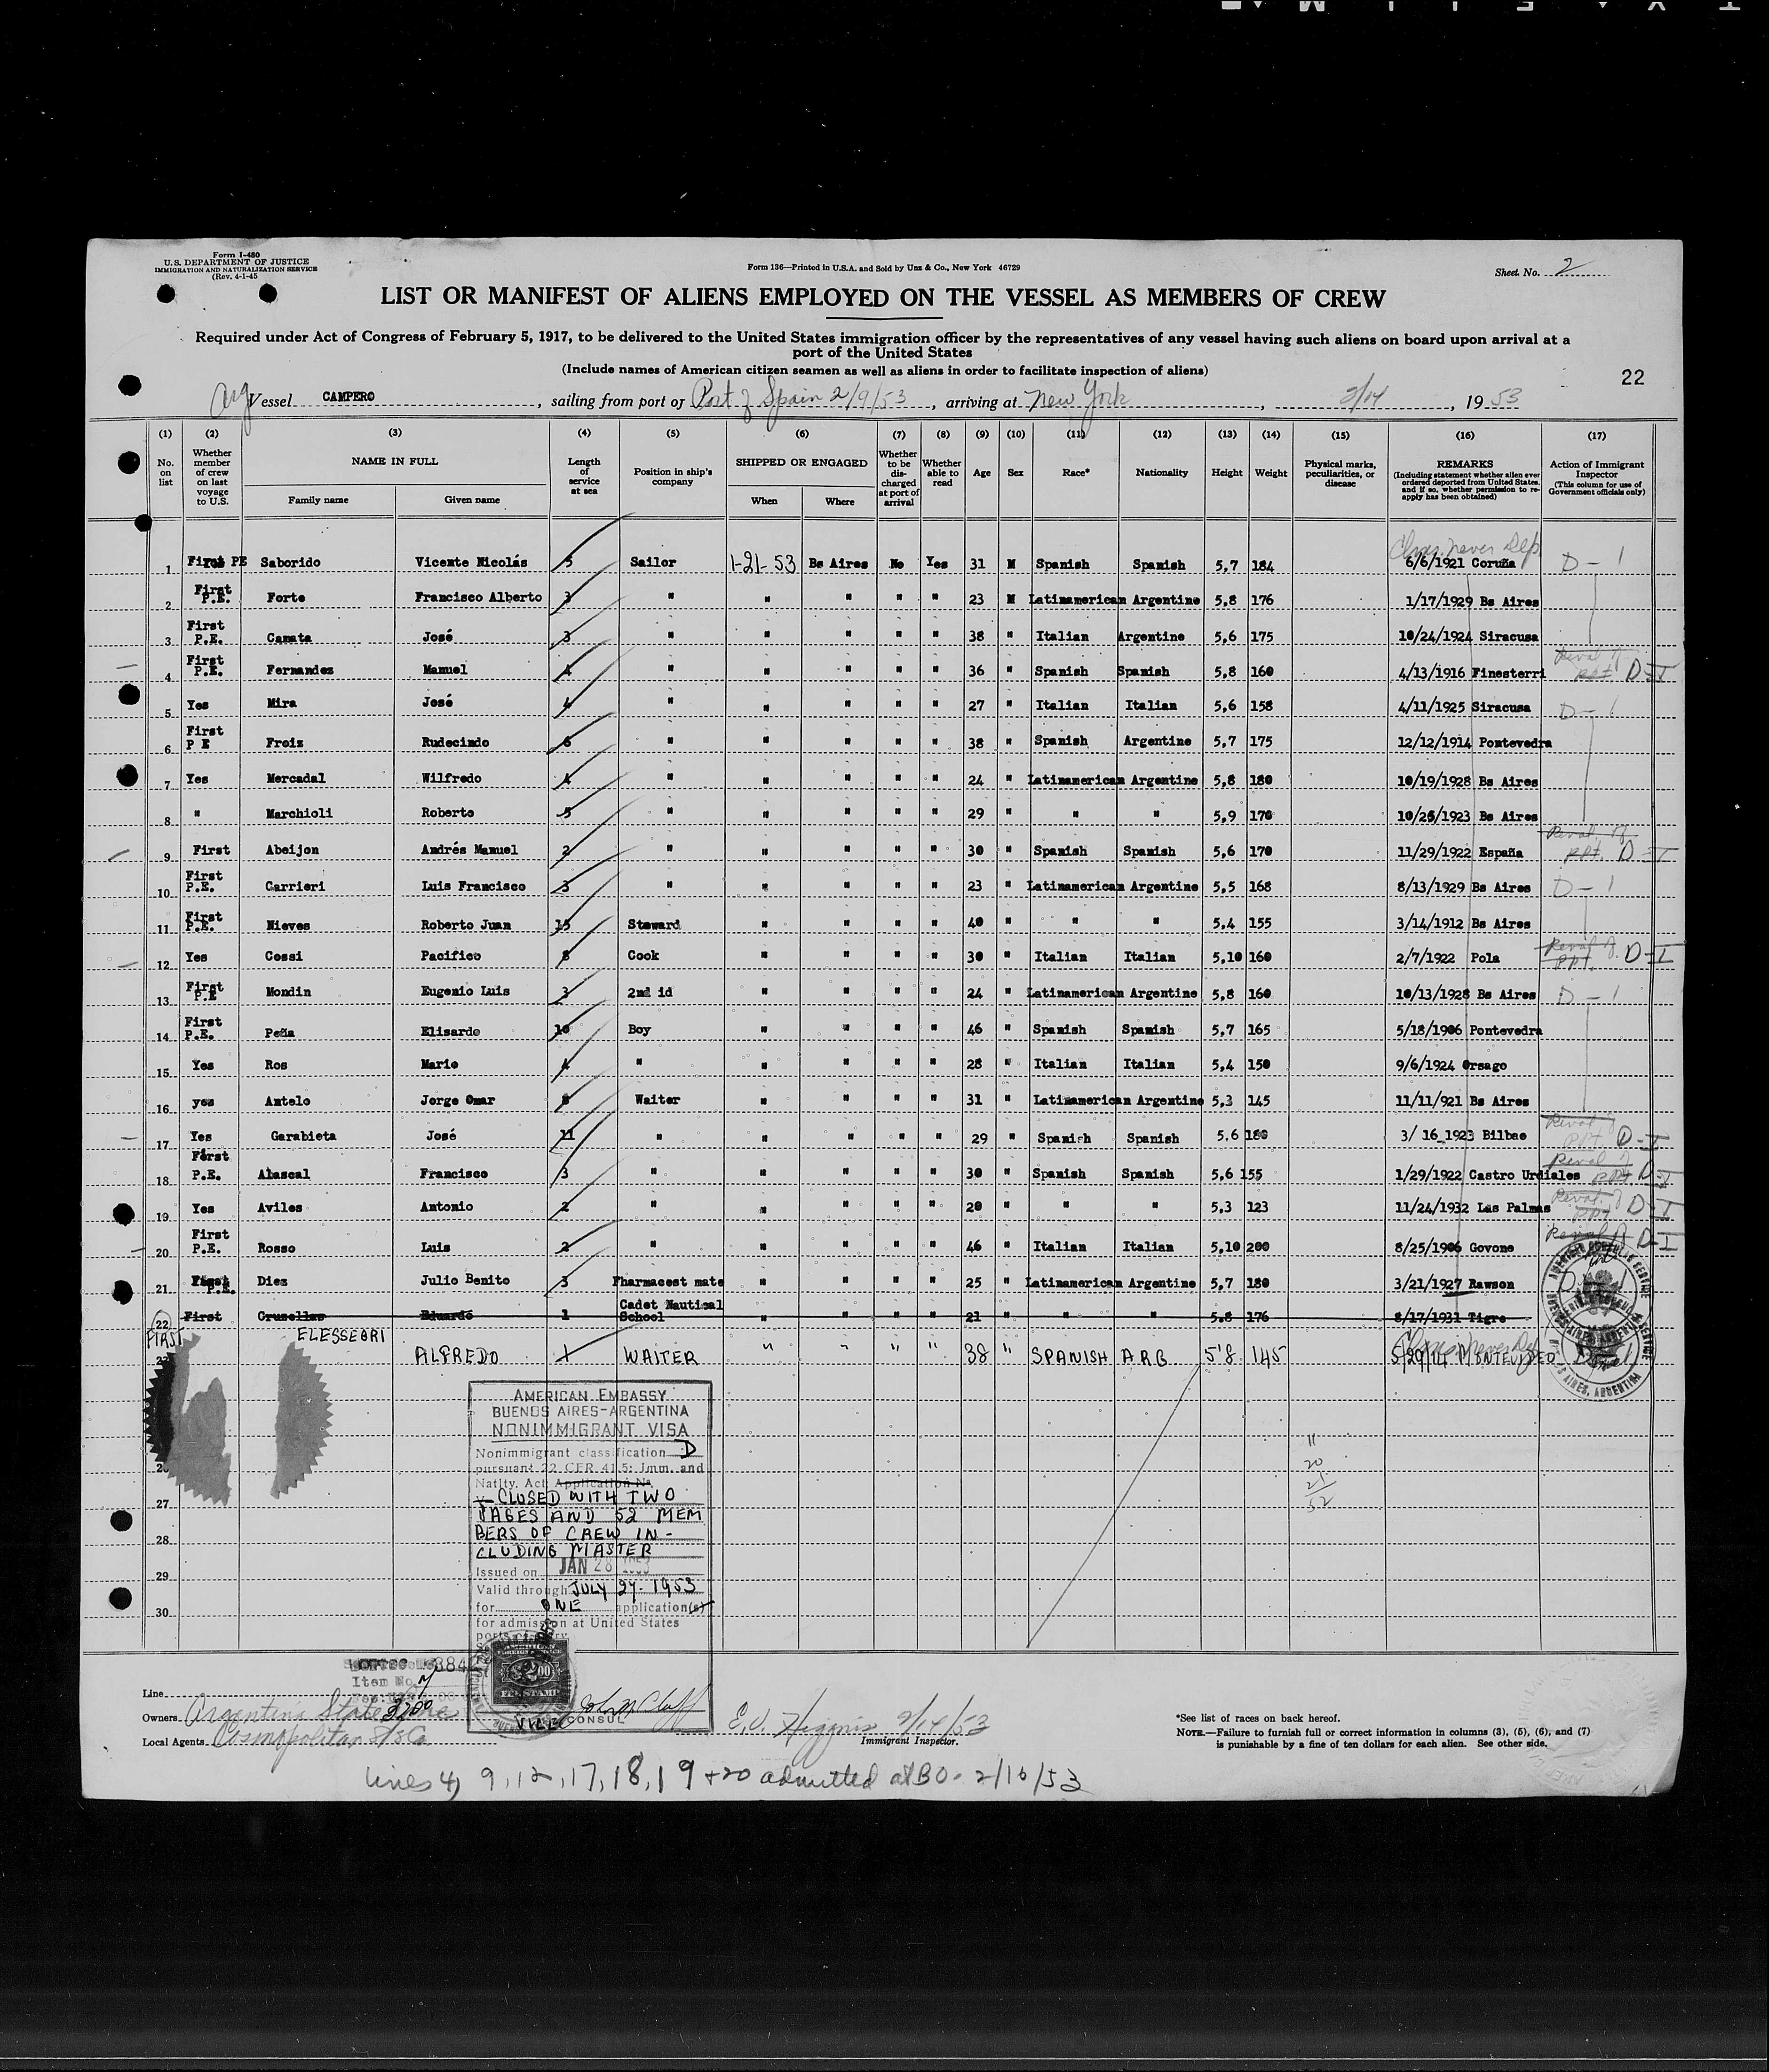 Form I-480
U.S. DEPARTMENT OF JUSTICE
IMMIGRATION AND NATURALIZATION SERVICE
(Rev. 4-1-45
Form 136—Printed in U.S.A. and Sold by Unz & Co., New York 46729
Sheet No. 2
LIST OR MANIFEST OF ALIENS EMPLOYED ON THE VESSEL AS MEMBERS OF CREW
Required under Act of Congress of February 5, 1917, to be delivered to the United States immigration officer by the representatives of any vessel having such aliens on board upon arrival at a
port of the United States
(Include names of American citizen seamen as well as aliens in order to facilitate inspection of aliens)
22
Arg Vessel CAMPERO, sailing from port of Port of Spain 2/9/53, arriving at New York, 2/14, 1953
(1) (2) (3) (4) (5) (6) (7) (8) (9) (10) (11) (12) (13) (14) (15) (16) (17)
No. on list
Whether member of crew on last voyage to U.S.
NAME IN FULL
Family name
Given name
Length of service at sea
Position in ship's company
SHIPPED OR ENGAGED
When
Where
Whether to be discharged at port of arrival
Whether able to read
Age
Sex
Race*
Nationality
Height
Weight
Physical marks, peculiarities, or disease
REMARKS
(Including statement whether alien ever ordered deported from United States, and if so, whether permission to reapply has been obtained)
Action of Immigrant Inspector
(This column for use of Government officials only)
never Dep.
1 First PE Saborido Vicente Nicolás 5 Sailor 1-21-53 Bs Aires No Yes 31 M Spanish Spanish 5,7 184 6/6/1921 Coruña D-1
2 First P.E. Forte Francisco Alberto 3 " " " " " 23 M Latinamerican Argentine 5,8 176 1/17/1929 Bs Aires
3 First P.E. Canata José 3 " " " " " 38 " Italian Argentine 5,6 175 10/24/1924 Siracusa
4 First P.E. Fernandez Manuel 4 " " " " " 36 " Spanish Spanish 5,8 160 4/13/1916 Finesterri D-I
5 Yes Mira José 4 " " " " " 27 " Italian Italian 5,6 158 4/11/1925 Siracusa D-1
6 First P E Froiz Rudecindo 6 " " " " " 38 " Spanish Argentine 5,7 175 12/12/1914 Pontevedra
7 Yes Mercadal Wilfredo 4 " " " " " 24 " Latinamerican Argentine 5,8 180 10/19/1928 Bs Aires
8 " Marchioli Roberto 5 " " " " " 29 " " " 5,9 170 10/25/1923 Bs Aires
9 First Abeijon Andrés Manuel 2 " " " " " 30 " Spanish Spanish 5,6 170 11/29/1922 España D-I
10 First P.E. Carrieri Luis Francisco 3 " " " " " 23 " Latinamerican Argentine 5,5 168 8/13/1929 Bs Aires D-1
11 First P.E. Nieves Roberto Juan 15 Steward " " " " 40 " " " 5,4 155 3/14/1912 Bs Aires
12 Yes Cossi Pacifico 8 Cook " " " " 30 " Italian Italian 5,10 160 2/7/1922 Pola D-I
13 First P.E Mondin Eugenio Luis 3 2nd id " " " " 24 " Latinamerican Argentine 5,8 160 10/13/1928 Bs Aires D-1
14 First P.E. Peña Elisardo 10 Boy " " " " 46 " Spanish Spanish 5,7 165 5/18/1906 Pontevedra
15 Yes Ros Mario 4 " " " " " 28 " Italian Italian 5,4 150 9/6/1924 Orsago
16 yes Antelo Jorge Omar 8 Waiter " " " " 31 " Latinamerican Argentine 5,3 145 11/11/921 Bs Aires
17 Yes Garabieta José 11 " " " " " 29 " Spanish Spanish 5.6 180 3/ 16 1923 Bilbao D-I
18 First P.E. Abascal Francisco 3 " " " " " 30 " Spanish Spanish 5,6 155 1/29/1922 Castro Urdiales D-I
19 Yes Aviles Antonio 2 " " " " " 20 " " " 5,3 123 11/24/1932 Las Palmas D-I
20 First P.E. Rosso Luis 2 " " " " " 46 " Italian Italian 5,10 200 8/25/1906 Govone D-I
21 First P.E. Diez Julio Benito 3 Pharmacest mate " " " " 25 " Latinamerican Argentine 5,7 180 3/21/1927 Rawson
22 First Crusellas Eduardo 1 Cadet Nautical School " " " " 21 " " " 5.8 176 8/17/1931 Tigre
FIRST ELESSEGRI ALFREDO 1 WAITER " " " " 38 " SPANISH ARG 5'8 145 5/29/14 MONTEVIDEO
11
20
21
52
27
28
29
30
AMERICAN EMBASSY
BUENOS AIRES-ARGENTINA
NONIMMIGRANT VISA
Nonimmigrant classification D
pursuant 22 CFR 41.5; Imm. and
Natlty. Act Application No.
CLOSED WITH TWO
PAGES AND 52 MEM
BERS OF CREW IN-
CLUDING MASTER
Issued on JAN 28 1953
Valid through JULY 27-1953
for ONE application(s)
for admission at United States
ports of entry
Item No. 7
Line
Owners Argentina State Line
Local Agents Cosmopolitan S/S Co
CONSUL
E.V. Higgins 2/14/53
Immigrant Inspector.
*See list of races on back hereof.
NOTE.—Failure to furnish full or correct information in columns (3), (5), (6), and (7)
is punishable by a fine of ten dollars for each alien. See other side.
Lines 4, 9, 12, 17, 18, 19 + 20 admitted at BO. 2/16/53